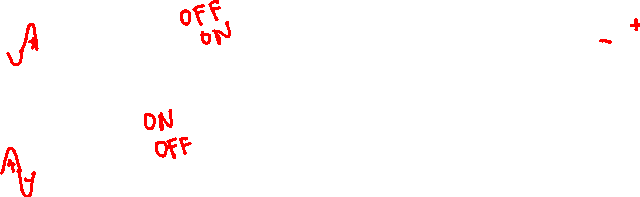 OFF
ON
- +
ON
OFF